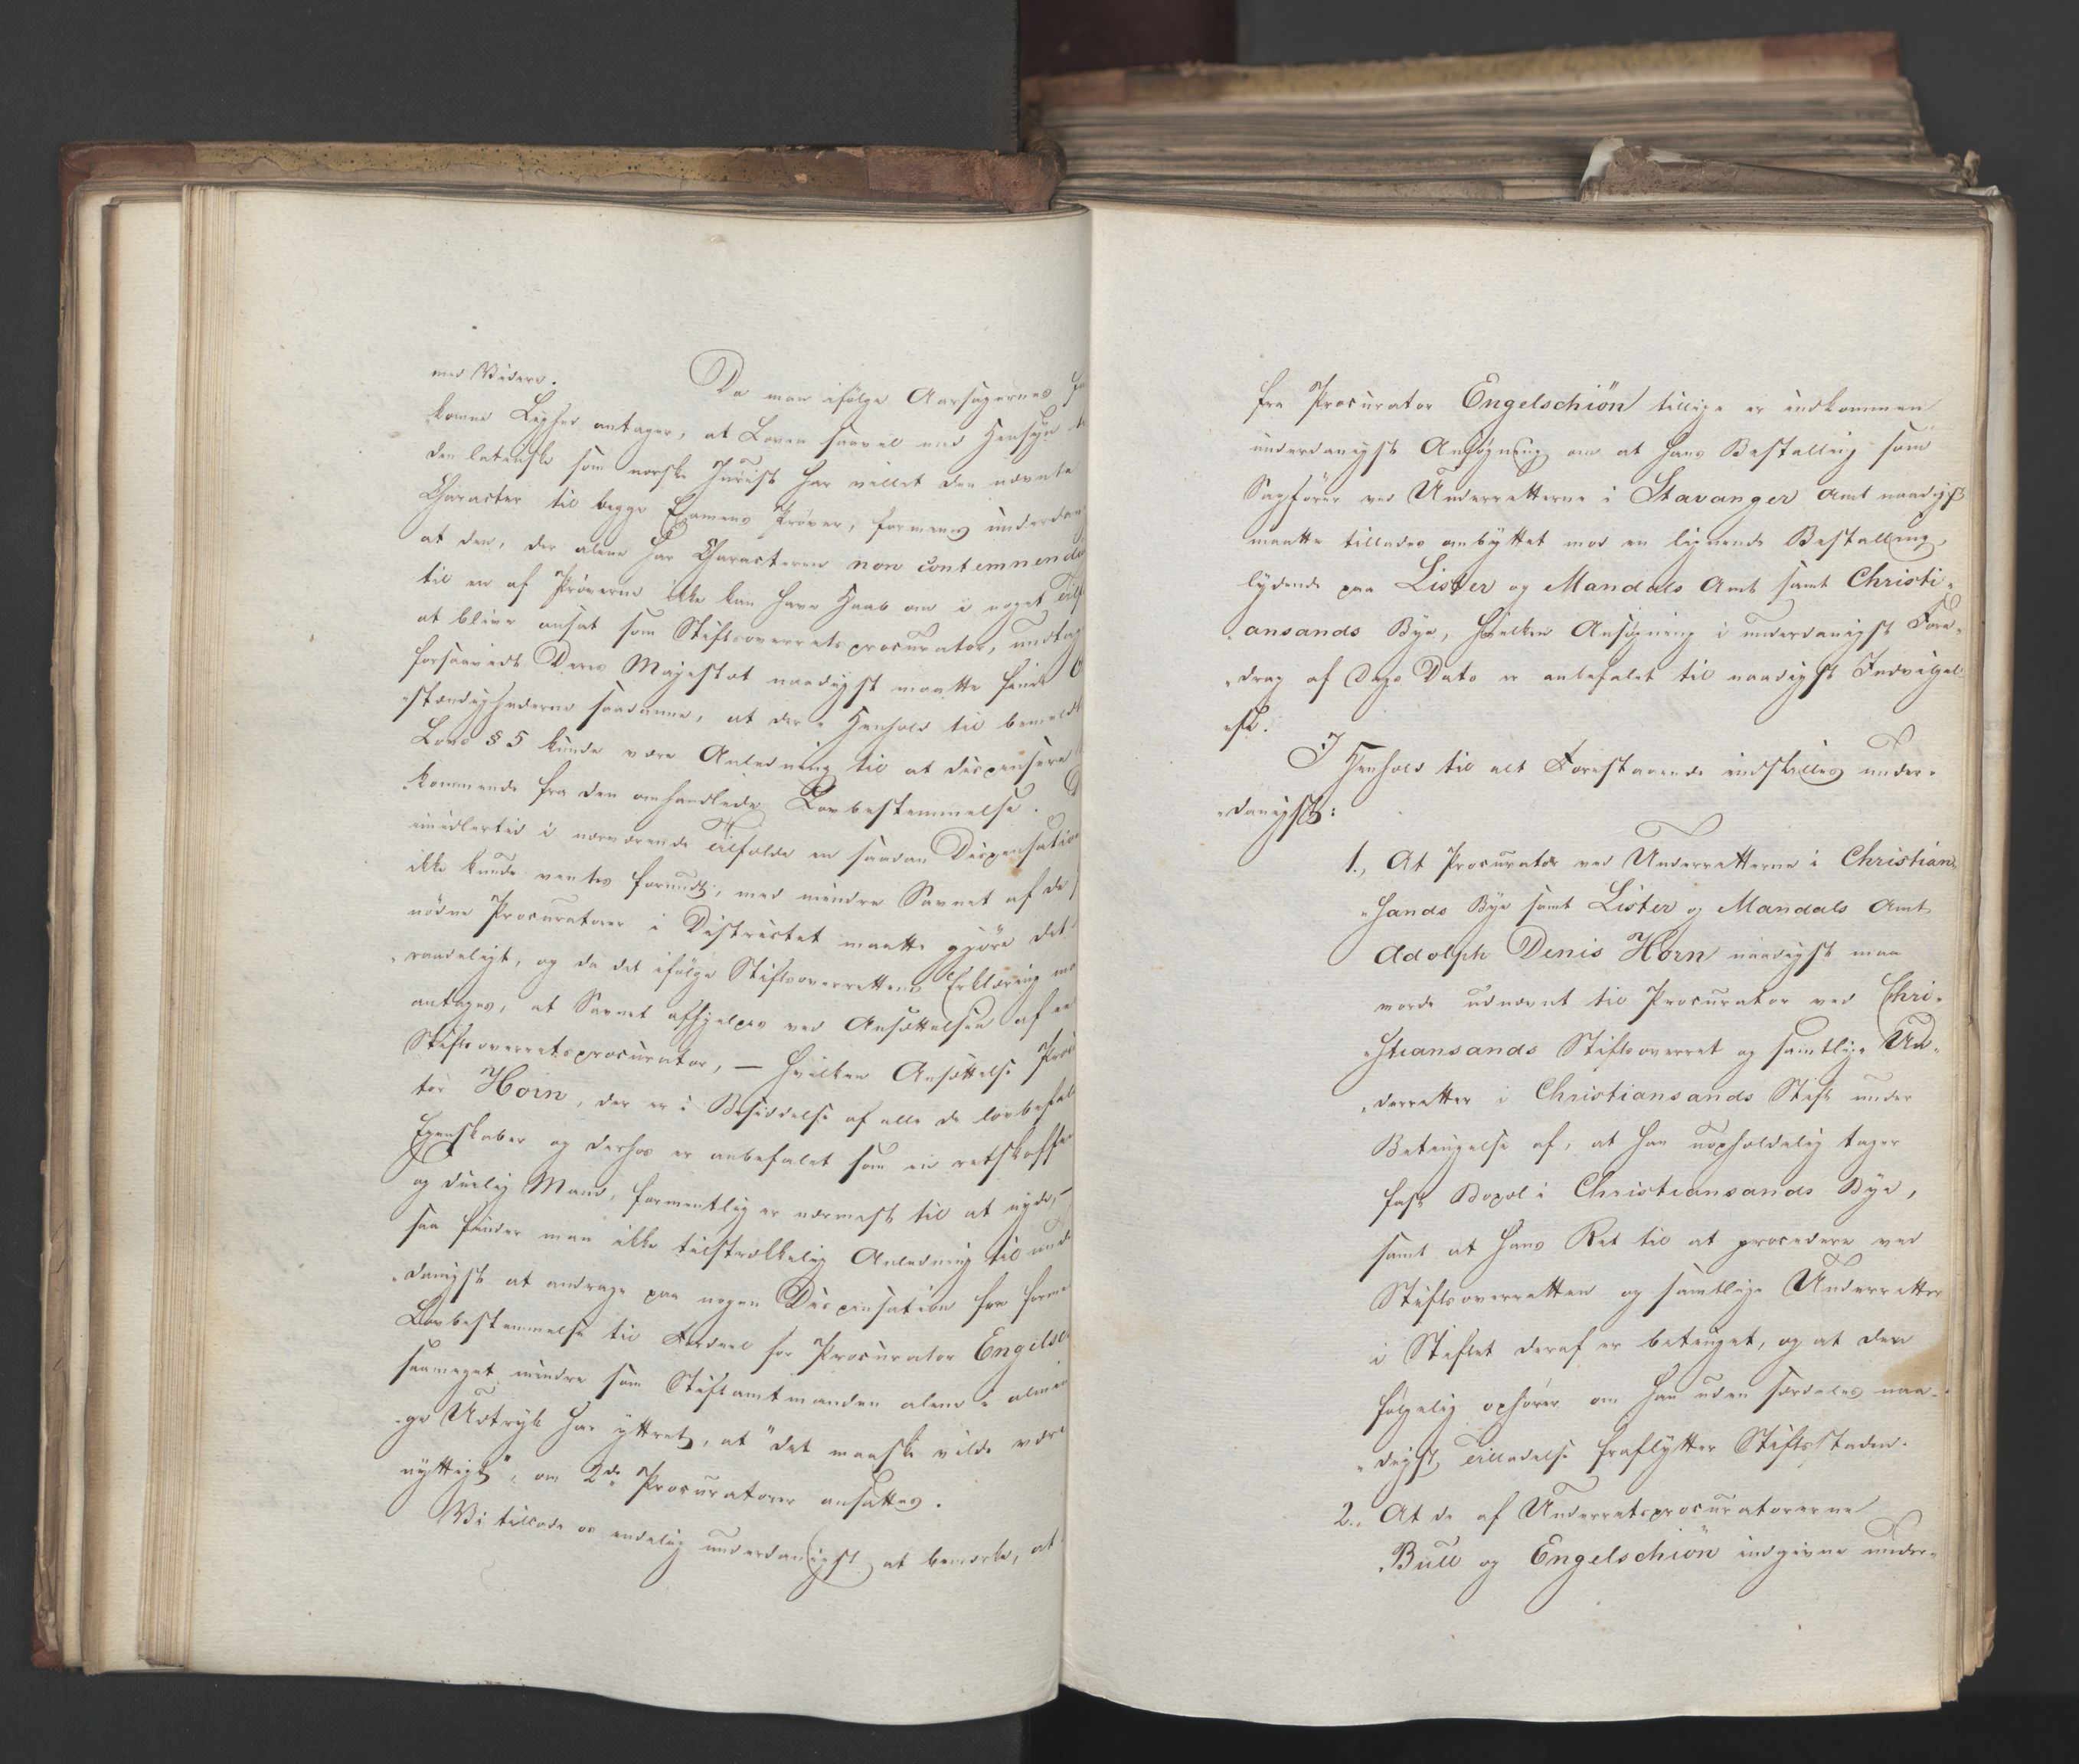 med Videre.
Da man ifølge Aarsagernes
komne Liighed antager, at Loven saavel med Hensyn
den latinske som norske Jurist har villet den nævnte
Character til begge Examens Prøver, formenes underdan
at den, der alene har Characteren non contemnend
til en af Prøverne ikke kan have Haab om i noget Tilf
at blive ansat som Stiftsoverretsprocurator, undtag
forsaavidt Deres Majestæt naadigst maatte finde
"stændighederne saadanne, at der i Henhold til bemeldt
Lovs § 5 kunde være Anledning til at dispensere
kommende fra den omhandlede Lovbestemmelse.
imidlertid i nærværende Tilfælde en saadan Dispensation
ikke kunde ventes forundt, med mindre Savnet af de
nödne Procuratorer i Districtet maatte gjöre det
"raadeligt, og da det ifølge Stiftsoverrettens Erklæring maa
antages, at Savnet afhjelpes ved Ansættelsen af en
Stiftsoverretsprocurator, — hvilken Ansættelse Procu
tor Horn, der er i Besiddelse af alle de lovbefal
Egenskaber og derhos er anbefalet som en retskaffen
og duelig Mand, formentlig er nærmest til at nyde, —
saa finder man ikke tilstrækkelig Anledning til unde
"danigst at andrage paa nogen Dispensation fra forme
Lovbestemmelse til Fordeel for Procurator Engelsc
saameget mindre som Stiftamtmanden alene i almin
"ge Udtryk har yttret, at "det maaskee vilde være
nyttigt", om 2de Procuratorer ansattes.
Vi tillade os endelig underdanigst at bemærke, at
fra Procurator Engelschiön tillige er indkommen
underdanigst Ansøgning om at hans Bestalling som
Sagfører ved Underretterne i Stavanger Amt naadigst
maatte tillades ombyttet mod en lignende Bestalling,
lydende paa Lister og Mandals Amt samt Christi"
"ansands Bye, hvilken Ansøgning i underdanigst Fore"
"drag af Dags Dato er anbefalet til naadigst Indvilgel
"se.
I Henhold til alt Forestaaende indstilles under"
"danigst:
1., At Procurator ved Underretterne i Christian"
"sands Bye samt Lister og Mandals Amt
Adolph Denis Horn naadigst maa
vorde udnævnt til Procurator ved Chri"
"stiansands Stiftsoverret og samtlige Un"
"derretter i Christiansands Stift under
Betingelse af, at han uopholdelig tager
fast Bopæl i Christiansands Bye,
samt at hans Ret til at procedere ved
Stiftsoverretten og samtlige Underretter
i Stiftet deraf er betinget, og at den
følgelig ophører om han uden særdeles naa"
"digst Tilladelse fraflytter Stiftsstaden.
2., At de af Underretsprocuratorerne
Bull og Engelschiön indgivne under"